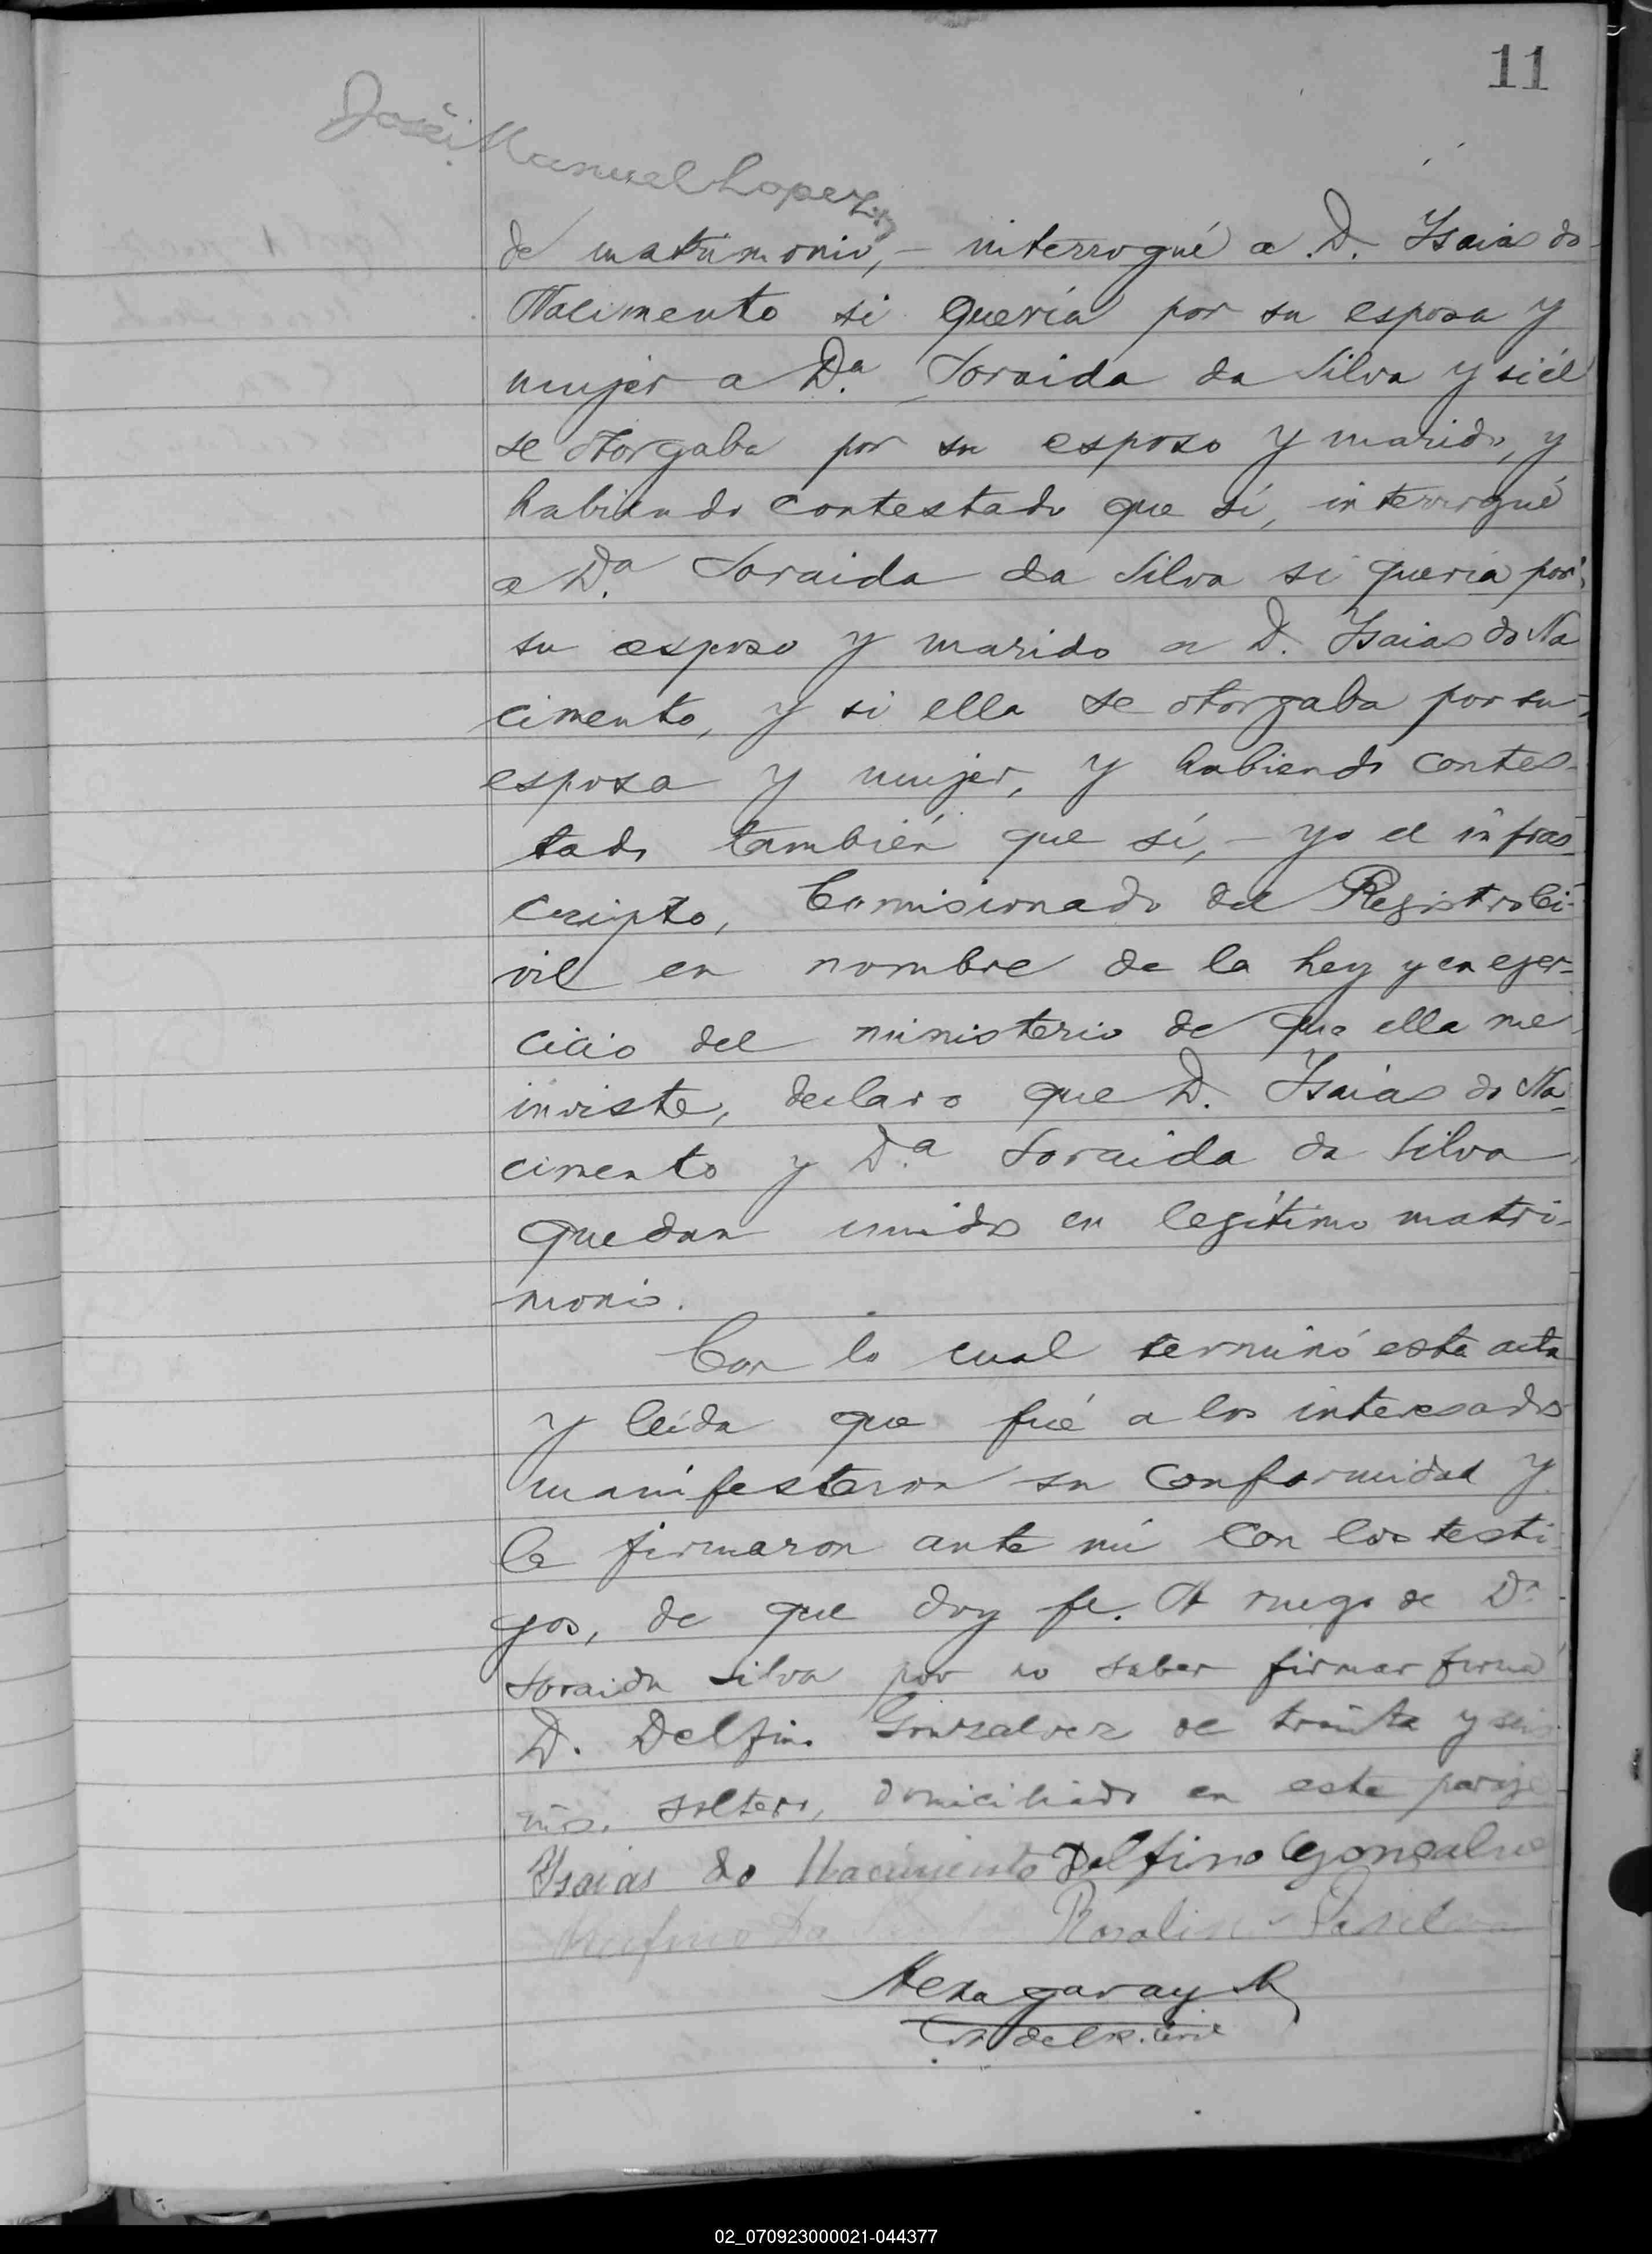 11
José Manuel Lopez
de matrimonio, — interrogué a D. Isaias do
Nacimento si quería por su esposa y
mujer a Da. Soraida da Silva y si él
se otorgaba por su esposo y marido, y
habiendo contestado que sí, interrogué
a Da. Soraida da Silva si quería por
su esposo y marido a D. Isaias do Na
cimento, y si ella se otorgaba por su
esposa y mujer, y habiendo contes-
tado también que sí, — yo el infras-
cripto, Comisionado del Registro Ci-
vil en nombre de la Ley y en ejer-
cicio del ministerio de que ella me
inviste, declaro que D. Isaías do Na-
cimento y Da. Soraida da Silva
quedan unidos en legítimo matri-
monio.
Con lo cual terminó esta acta
y leída que fué a los interesados
manifestaron su conformidad y
la firmaron ante mí con los testi
gos, de que doy fe. A ruego de Da
Soraida Silva por no saber firmar firma
D. Delfino Gonzalvez de treinta y seis
años, soltero, domiciliado en este paraje
Isaias do Nacimiento Delfino Gonçalve
Rufino Da
del R. Civil
02_070923000021-044377